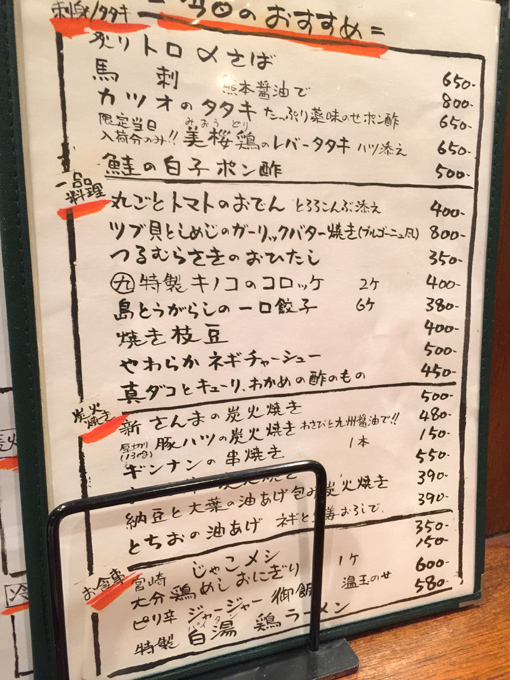 刺身/タタキ
=今日のおすすめ=
炙りトロ〆さば 650-
馬刺 熊本醤油で 800-
カツオのタタキ たっぷり薬味のせポン酢 650-
限定当日入荷分のみ!! 美桜鶏のレバータタキ ハツ添え 650-
みおうどり
鮭の白子ポン酢 500-
一品料理
丸ごとトマトのおでん とろろこんぶ添え 400-
ツブ貝としめじのガーリックバター焼き(ブルゴーニュ風) 800-
つるむらさきのおひたし 350-
㊈特製キノコのコロッケ 2ケ 400-
島とうがらしの一口餃子 6ケ 380-
焼き枝豆 400-
やわらかネギチャーシュー 500-
真ダコとキューリ、わかめの酢のもの 450-
炭火焼き
新さんまの炭火焼き 500-
厚切り(130g) 豚ハツの炭火焼き わさびと九州醤油で!! 480-
ギンナンの串焼き 1本 150-
550-
納豆と大葉の油あげ包み炭火焼き 390-
とちおの油あげ ネギと おろしで 390-
お食事
宮崎 じゃこメシ 350-
大分 鶏めしおにぎり 1ケ 150-
ピリ辛 ジャージャー御飯 温玉のせ 600-
特製 白湯鶏ラーメン 580-
パイタン